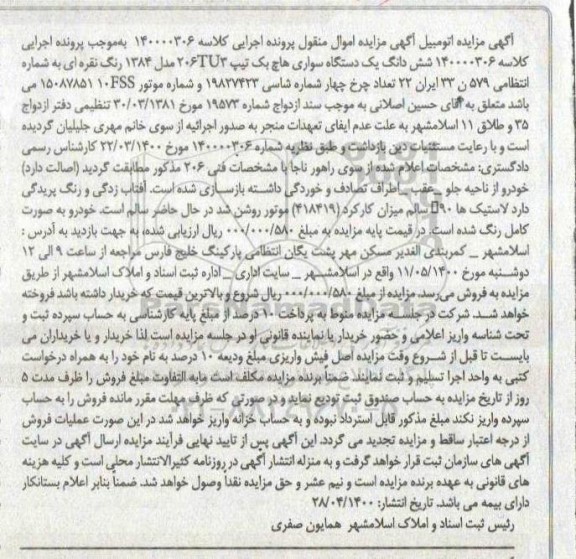 آگهی مزایده اتومبیل آگهی مزایده اموال منقول پرونده اجرایی کلاسه ۱۴۰۰۰۰۳۰۶ بموجب پرونده اجرایی
کلاسه ۱۴۰۰۰۰۳۰۶ شش دانگ یک دستگاه سواری هاچ بک تیپ ۲۰۶TU۳ مدل ۱۳۸۴ رنگ نقره ای به شماره
انتظامی ۵۷۹ ن ۳۳ ایران ۲۲ تعداد چرخ چهار شماره شاسی ۱۹۸۳۷۴۲۳ و شماره موتور ۱۰FSS ۱۵۰۸۷۸۵۱ می
باشد متعلق به آقای حسین اصلانی به موجب سند ازدواج شماره ۱۹۵۷۳ مورخ ۳۰/۰۳/۱۳۸۱ تنظیمی دفتر ازدواج
۳۵ و طلاق ۱۱ اسلامشهر به علت عدم ایفای تعهدات منجر به صدور اجرائیه از سوی خانم مهری جلیلیان گردیده
است و با رعایت مستثنیات دین بازداشت و طبق نظریه شماره ۱۴۰۰۰۰۳۰۶ مورخ ۲۲/۰۳/۱۴۰۰ کارشناس رسمی
دادگستری: مشخصات اعلام شده از سوی راهور ناجا با مشخصات فنی ۲۰۶ مذکور مطابقت گردید (اصالت دارد)
خودرو از ناحیه جلو _ عقب _ اطراف تصادف و خوردگی داشته بازسازی شده است. آفتاب زدگی و رنگ پریدگی
دارد لاستیک ها ۹۰ سالم میزان کارکرد (۴۱۸۴۱۹) موتور روشن شد در حال حاضر سالم است. خودرو به صورت
کامل رنگ شده است. در قیمت پایه مزایده به مبلغ ۰۰۰/۰۰۰/۵۸۰ ریال ارزیابی شده، به جهت بازدید به آدرس :
اسلامشهر _ کمربندی الغدیر مسکن مهر پشت یگان انتظامی پارکینگ خلیج فارس مراجعه از ساعت ۹ الی ۱۲
دوشنبه مورخ ۱۱/۰۵/۱۴۰۰ واقع در اسلامشهر _ سایت اداری _ اداره ثبت اسناد و املاک اسلامشهر از طریق
مزایده به فروش می‌رسد. مزایده از مبلغ ۰۰۰/۰۰۰/۵۸۰ ریال شروع و بالاترین قیمت که خریدار داشته باشد فروخته
خواهد شد. شرکت در جلسه مزایده منوط به پرداخت ۱۰ درصد از مبلغ پایه کارشناسی به حساب سپرده ثبت و
تحت شناسه واریز اعلامی و حضور خریدار یا نماینده قانونی او در جلسه مزایده است لذا خریدار و یا خریداران می
بایست تا قبل از شروع وقت مزایده اصل فیش واریزی مبلغ ودیعه ۱۰ درصد به نام خود را به همراه درخواست
کتبی به واحد اجرا تسلیم و ثبت نمایند. ضمناً برنده مزایده مکلف است مابه التفاوت مبلغ فروش را ظرف مدت ۵
روز از تاریخ مزایده به حساب صندوق ثبت تودیع نماید و در صورتی که ظرف مهلت مقرر مانده فروش را به حساب
سپرده واریز نکند مبلغ مذکور قابل استرداد نبوده و به حساب خزانه واریز خواهد شد در این صورت عملیات فروش
از درجه اعتبار ساقط و مزایده تجدید می گردد. این آگهی پس از تایید نهایی فرآیند مزایده ارسال آگهی در سایت
آگهی های سازمان ثبت قرار خواهد گرفت و به منزله انتشار آگهی در روزنامه کثیرالانتشار محلی است و کلیه هزینه
های قانونی به عهده برنده مزایده است و نیم عشر و حق مزایده نقداً وصول خواهد شد. ضمناً بنابر اعلام بستانکار
دارای بیمه می باشد. تاریخ انتشار: ۲۸/۰۴/۱۴۰۰
رئیس ثبت اسناد و املاک اسلامشهر همایون صفری